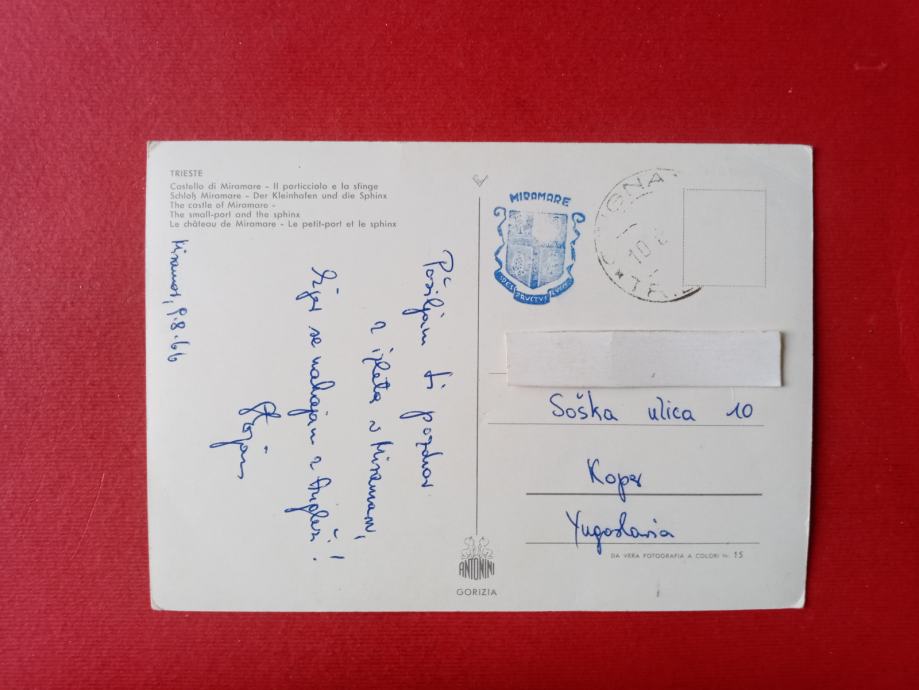 TRIESTE
Castello di Miramare - Il porticciolo e la sfinge
Schloß Miramare - Der Kleinhafen und die Sphinx
The castle of Miramare -
The small-port and the sphinx
Le château de Miramare - Le petit-port et le sphinx
9.8.66
Pošiljam ti pozdrav
z izleta v Miramaru,
kjer se nahajam z Angleži!
MIRAMARE
Soška ulica 10
Koper
Yugoslavia
DA VERA FOTOGRAFIA A COLORI Nr. 15
ANTONINI
GORIZIA